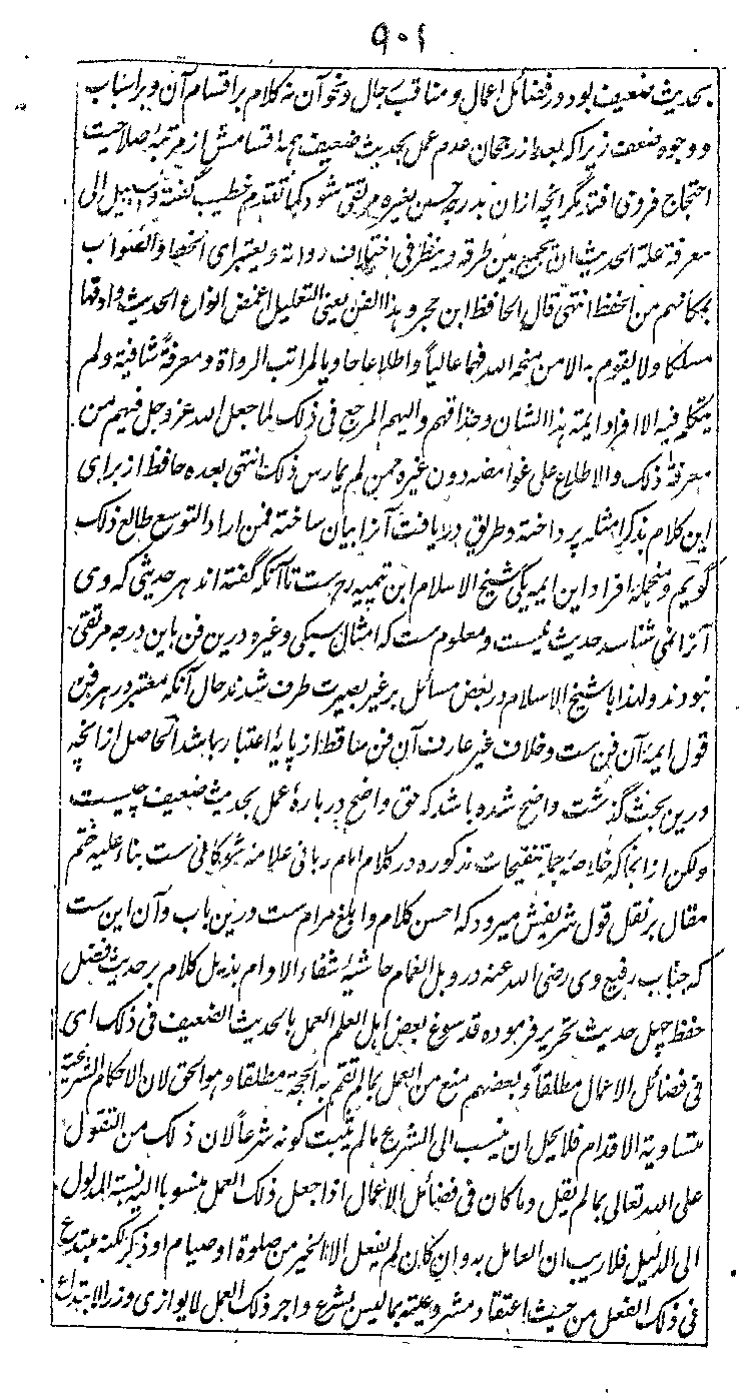 ۹۰۱
بحدیث ضعیف بود در فضائل اعمال و مناقب رجال و نحو آن نه کلام بر اقسام آن و بر اسباب
و وجوه ضعف زیرا که بعد از رجحان عدم عمل بحدیث ضعیف همه اقسامش از مرتبهٔ صلاحیت
احتجاج فروتی افتد مگر آنچه ازان بدرجه حسن لغیره مرتقی شود کما تقدم خطیب گفته والسبیل الی
معرفة علة الحدیث ان یجمع بین طرقه وینظر فی اختلاف رواته ویعتبر ای الخطا والصواب
بمکانهم من الحفظ انتهی قال الحافظ ابن حجر وهذا الفن یعنی التعلیل اغمض انواع الحدیث وادقها
مسلکا ولا یقوم به الا من منحه الله فهما عالیاً واطلاعا حاویا لمراتب الرواة ومعرفةً شافیة ولم
یتکلم فیه الا افراد ایمة هذا الشان وحذاقهم والیهم المرجع فی ذلک لما جعل الله عز وجل فیهم من
معرفة ذلک والاطلاع علی غوامضه دون غیرهم ممن لم یمارس ذلک انتهی بعده حافظ از برای
این کلام بذکر امثله پرداخته و طریق دریافت آنرا بیان ساخته فمن اراد التوسع طالع ذلک
گویم و منجمله افراد این ایمه یکی شیخ الاسلام ابن تیمیه رح ست تا آنکه گفته اند هر حدیثی که وی
آنرا نمی شناسد حدیث نیست و معلوم ست که امثال سبکی وغیره درین فن باین درجه مرتقی
نبودند و لهذا با شیخ الاسلام در بعض مسائل بر غیر بصیرت طرف شدند حال آنکه معتبر در هر فن
قول ایمهٔ آن فن ست و خلاف غیر عارف آن فن ساقط از پایهٔ اعتبار باشد الحاصل ازانچه
درین بحث گذشت واضح شده باشد که حق واضح دربارهٔ عمل بحدیث ضعیف چیست
ولکن ازانجا که خلاصه جمله تنقیحات مذکوره در کلام امام ربانی علامه شوکانی ست بناءً علیه ختم
مقال بر نقل قول شریفش میرود که احسن کلام و ابلغ مرام ست درین باب و آن این ست
که جناب رفیع وی رضی الله عنه در وبل الغمام حاشیهٔ شفاء الاوام بذیل کلام بر حدیث فضل
حفظ چهل حدیث تحریر فرموده قد سوغ بعض اهل العلم العمل بالحدیث الضعیف فی ذلک ای
فی فضائل الاعمال مطلقاً وبعضهم منع من العمل بما لم تقم به الحجة مطلقا وهو الحق لان الاحکام الشرعیة
متساویة الاقدام فلا یحل ان ینسب الی الشرع ما لم یثبت کونه شرعاً لان ذلک من التقول
علی الله تعالی بما لم یقل وما کان فی فضائل الاعمال اذا جعل ذلک العمل منسوبا الیه نسبة المدلول
الی الدلیل فلا ریب ان العامل به وان کان لم یفعل الا الخیر من صلوة او صیام او ذکر لکنه مبتدع
فی ذلک الفعل من حیث اعتقاد مشروعیته بما لیس بشرع واجر ذلک العمل لا یوازی وزر الابتداع